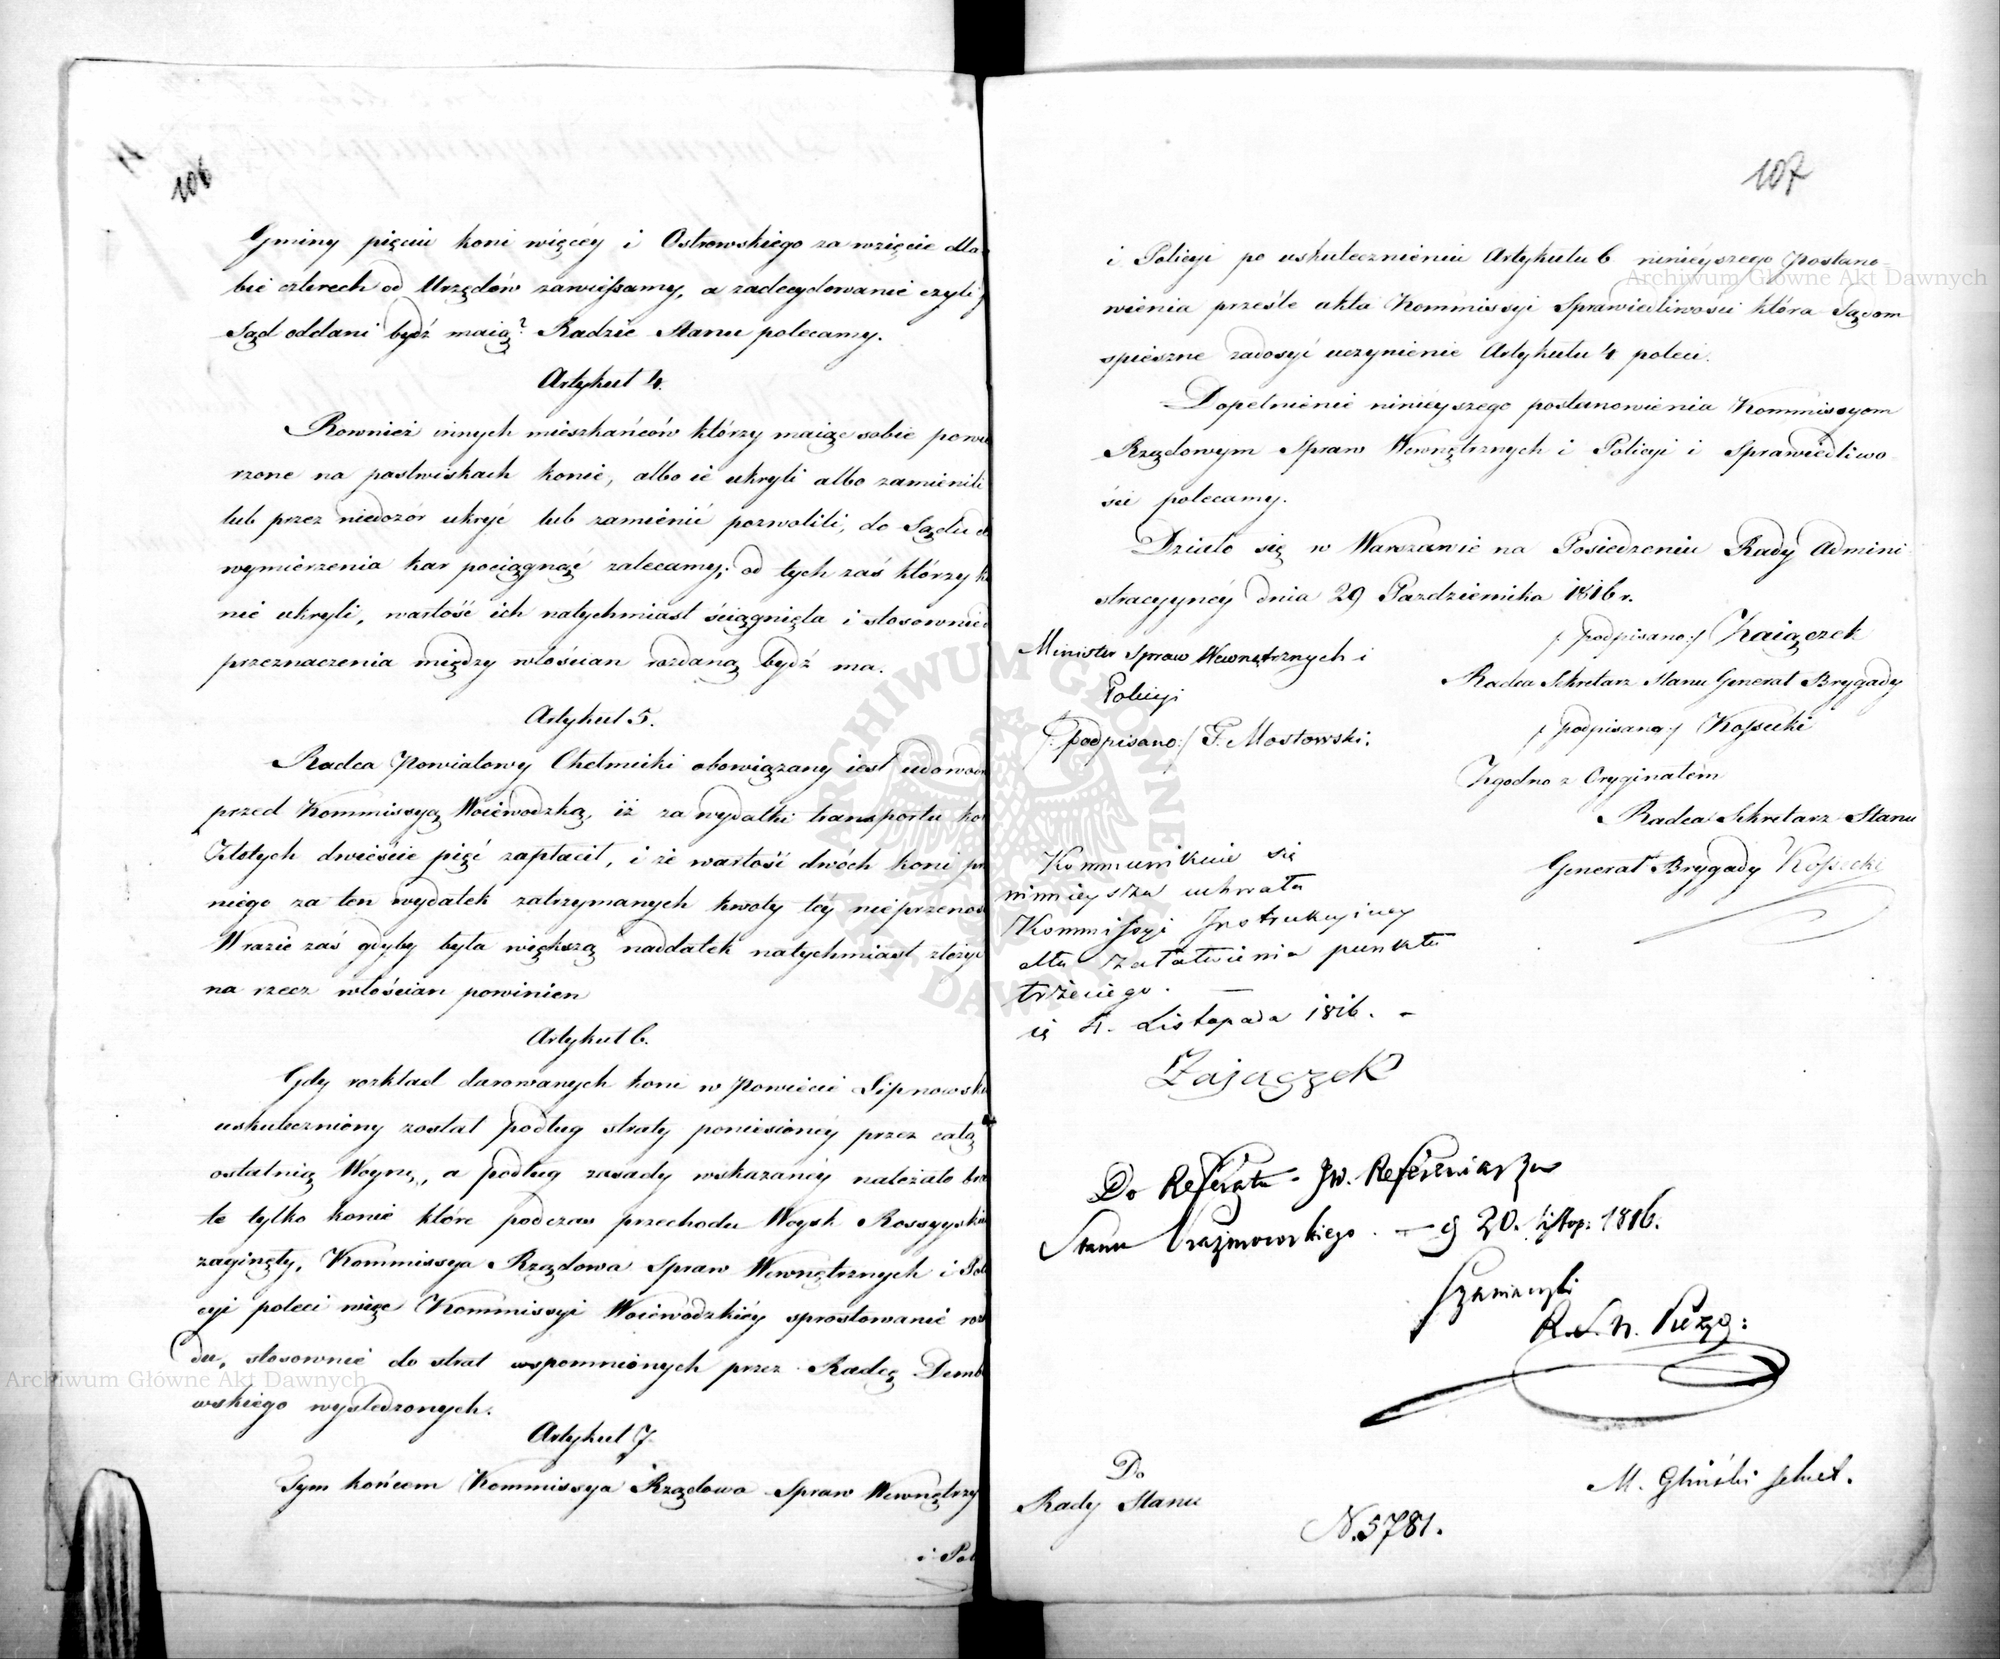 106
Gminy pięciu koni więcéy i Ostrowskiego za wzięcie dla
bie czterech od Urzędów zawieszamy, a zadecydowanie czyli
Sąd oddani bydź maią? Radzie Stanu polecamy.
Artykuł 4.
Rownież innych mieszkańców którzy maiąc sobie powie
rzone na pastwiskach konie, albo ie ukryli albo zamienili
lub przez niedozór ukryć lub zamienić pozwolili, do Sądu d
wymierzenia kar pociągnąć zalecamy; od tych zaś którzy k
nie ukryli, wartość ich natychmiast ściągnięta i stosownie
przeznaczenia między włościan rozdaną bydź ma.
Artykuł 5.
Radca Powiatowy Chełmicki obowiązany iest udowod
przed Kommissyą Woiewodzką, iż za wydatki transportu ko
Złotych dwieście pięć zapłacił, i że wartość dwóch koni prz
niego za ten wydatek zatrzymanych kwoty téy nieprzenos
W razie zaś gdyby była większą naddatek natychmiast złoży
na rzecz włościan powinien
Artykuł 6.
Gdy rozkład darowanych koni w Powiecie Lipnowsk
uskuteczniony został podług straty poniesionéy przez całą
ostatnią Woynę, a podług zasady wskazanéy należało br
te tylko konie które podczas przechodu Woysk Rossyysk
zaginęły, Kommissya Rządowa Spraw Wewnętrznych i Pol
cyi poleci więc Kommissyi Woiewodzkiéy sprostowanie roz
du, stosownie do strat wspomnionych przez Radcę Demb
owskiego wyśledzonych.
Artykuł 7.
Tym końcem Kommissya Rządowa Spraw Wewnętrzny
i Pol
107
i Policyi po uskutecznieniu Artykułu 6 ninieyszego postano-
wienia prześle akta Kommissyi Sprawiedliwości która Sądom
spieszne zadosyć uczynienie Artykułu 4 poleci.
Dopełnienie ninieyszego postanowienia Kommissyom
Rządowym Spraw Wewnętrznych i Policyi i Sprawiedliwo-
ści polecamy.
Działo się w Warszawie na Posiedzeniu Rady Admini-
stracyynéy dnia 29 Pazdziernika 1816 r.
/: podpisano :/ Zaiączek
Minister Spraw Wewnętrznych i
Policyi
/: podpisano :/ T. Mostowski.
Radca Sekretarz Stanu Generał Brygady
/: podpisano :/ Kossecki
Zgodno z Oryginałem
Radca Sekretarz Stanu
Generał Brygady Kossecki
Kommunikuie się
ninieysza uchwała
Kommissyi Instrukcyiney
dla załatwienia punktu
trzeciego. —
4. Listopada 1816. -
Zajączek
Do Referatu JW. Referendarza
Stanu — 20. Listop: 1816.
Do
Rady Stanu
M. Gliński
N. 5781.
Archiwum Główne Akt Dawnych
Archiwum Główne Akt Dawnych
ARCHIWUM GŁÓWNE AKT DAWNYCH